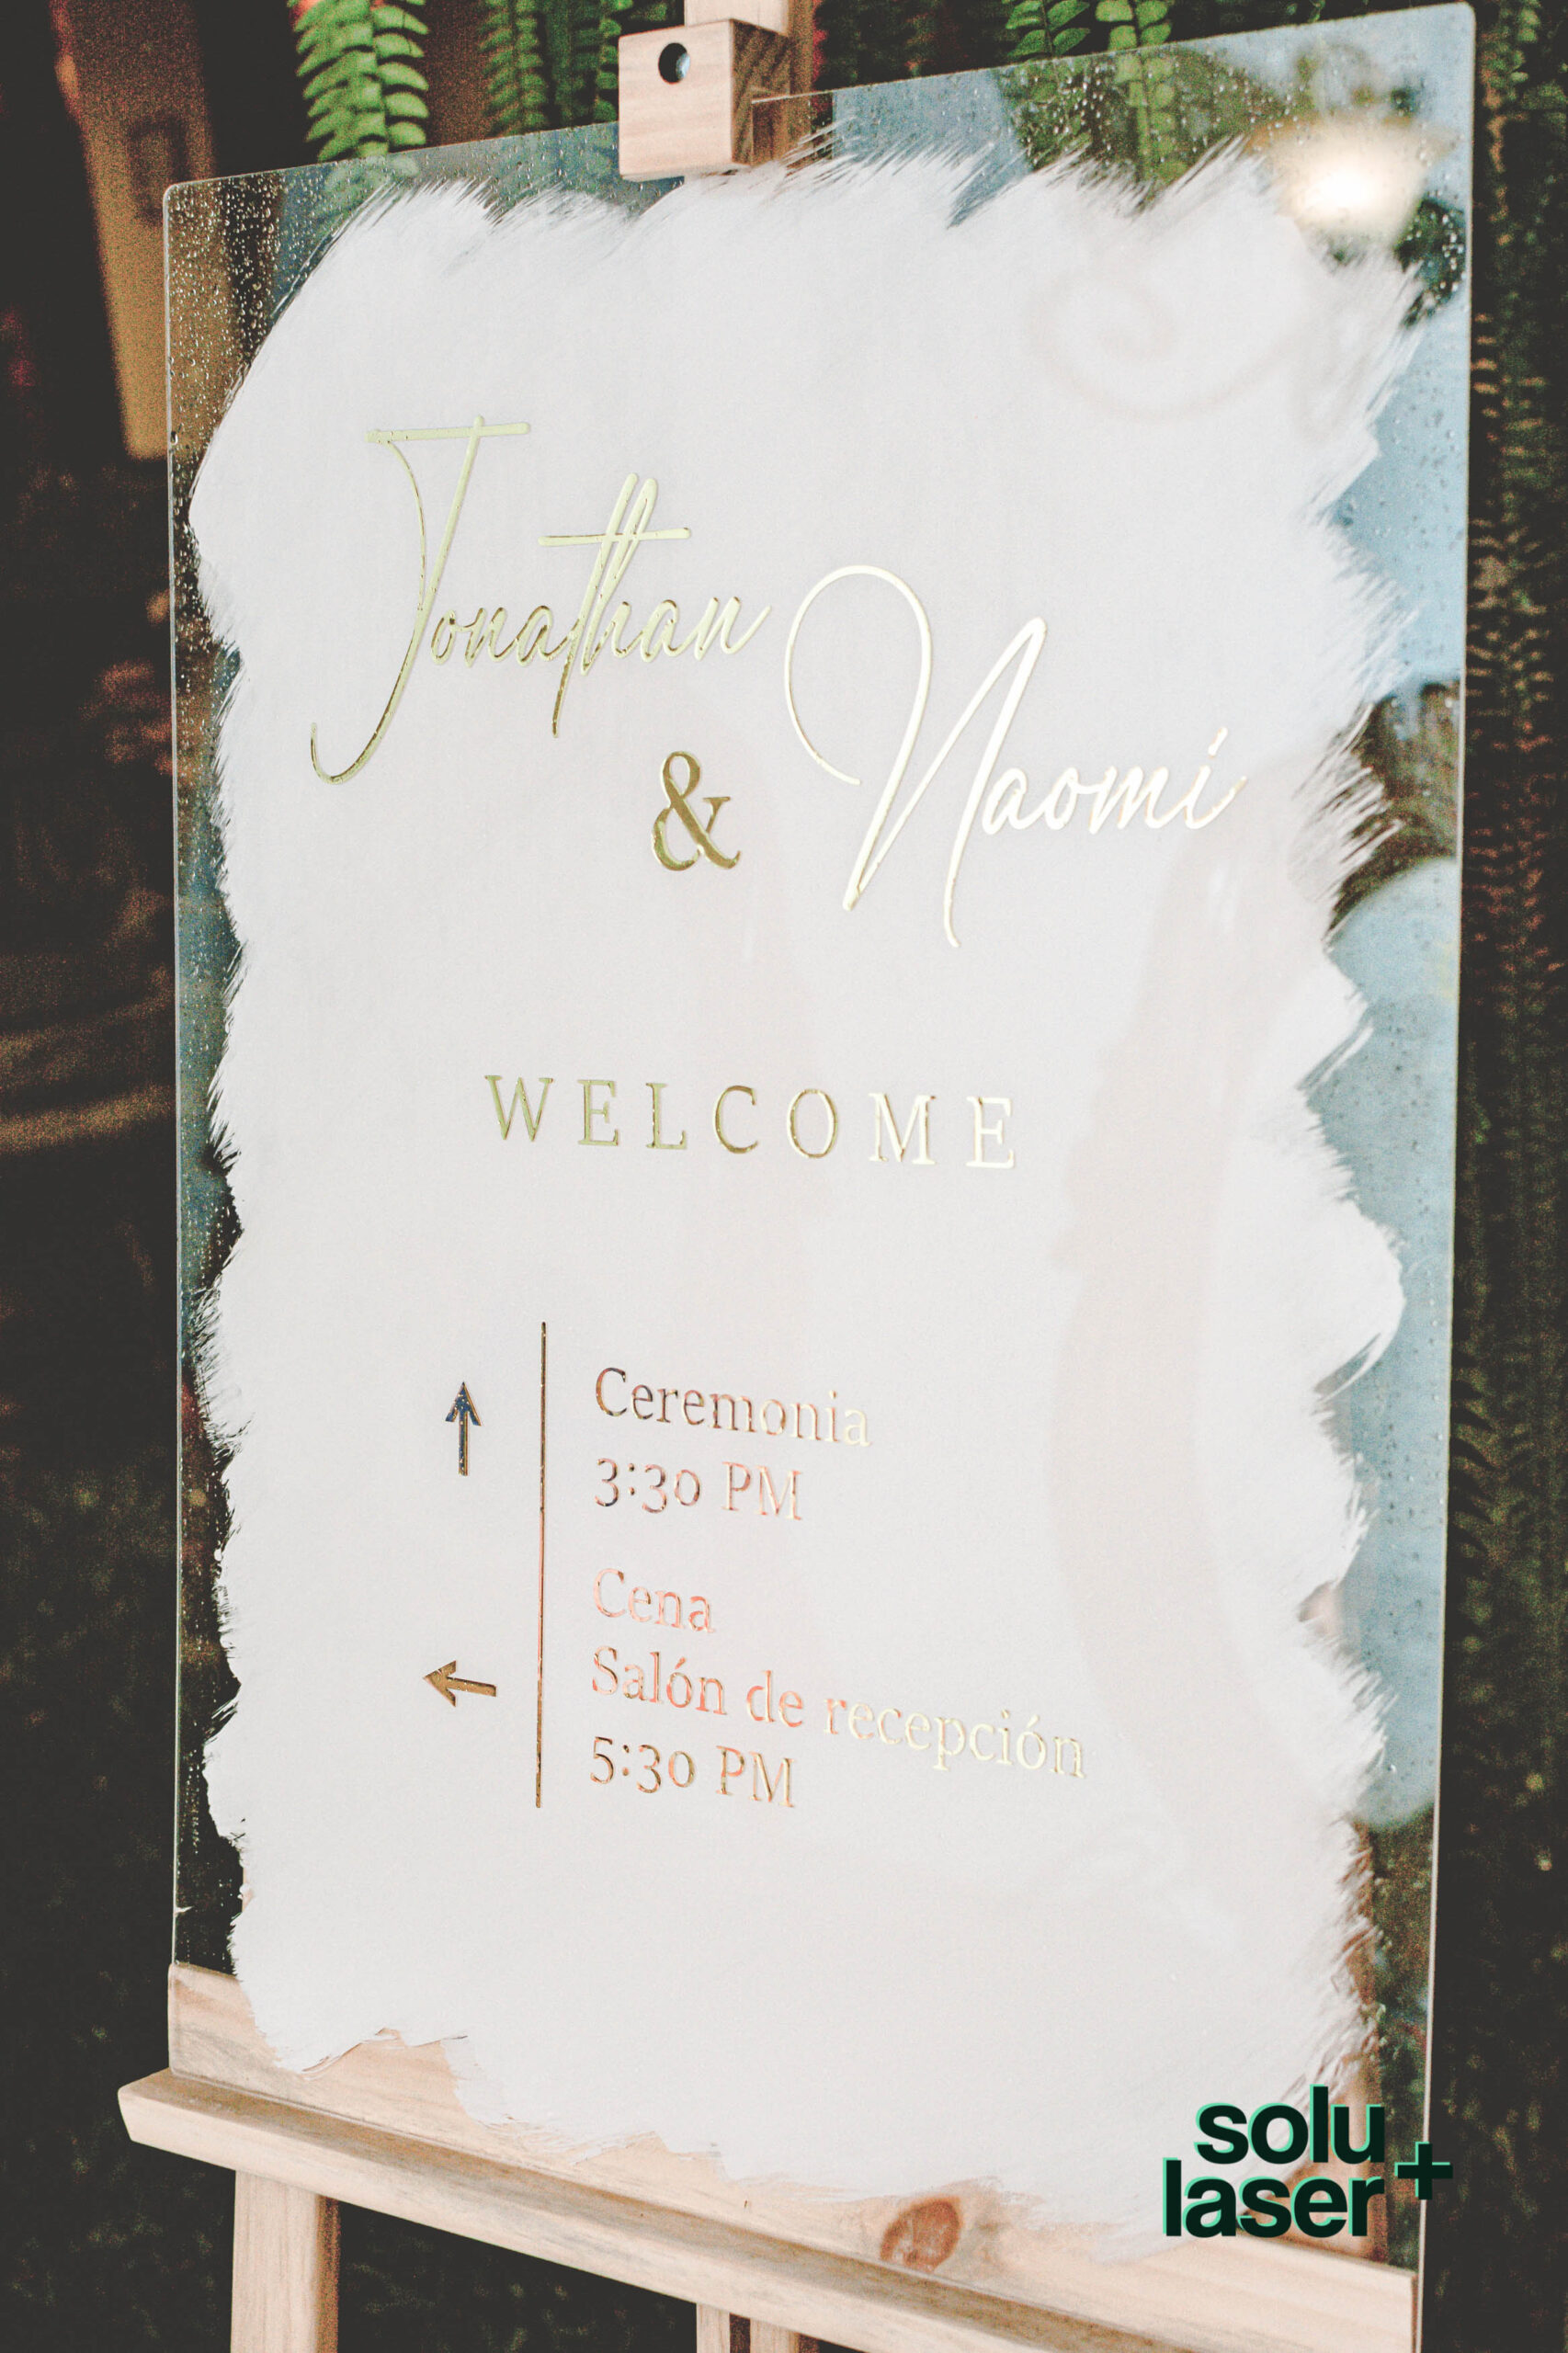 Jonathan
& Naomi
WELCOME
Ceremonia
3:30 PM
Cena
Salón de recepción
5:30 PM
solu
laser+